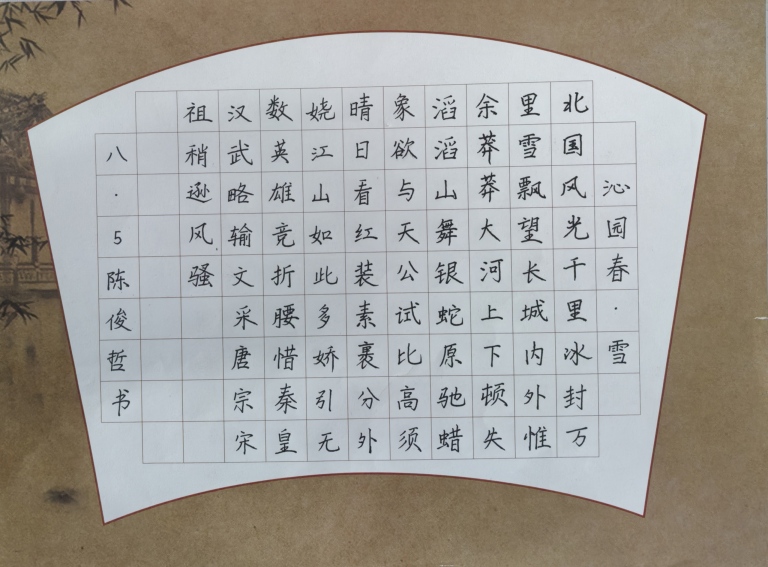 沁园春·雪
北国风光千里冰封万
里雪飘望长城内外惟
余莽莽大河上下顿失
滔滔山舞银蛇原驰蜡
象欲与天公试比高须
晴日看红装素裹分外
娆江山如此多娇引无
数英雄竞折腰惜秦皇
汉武略输文采唐宗宋
祖稍逊风骚
八·5陈俊哲书